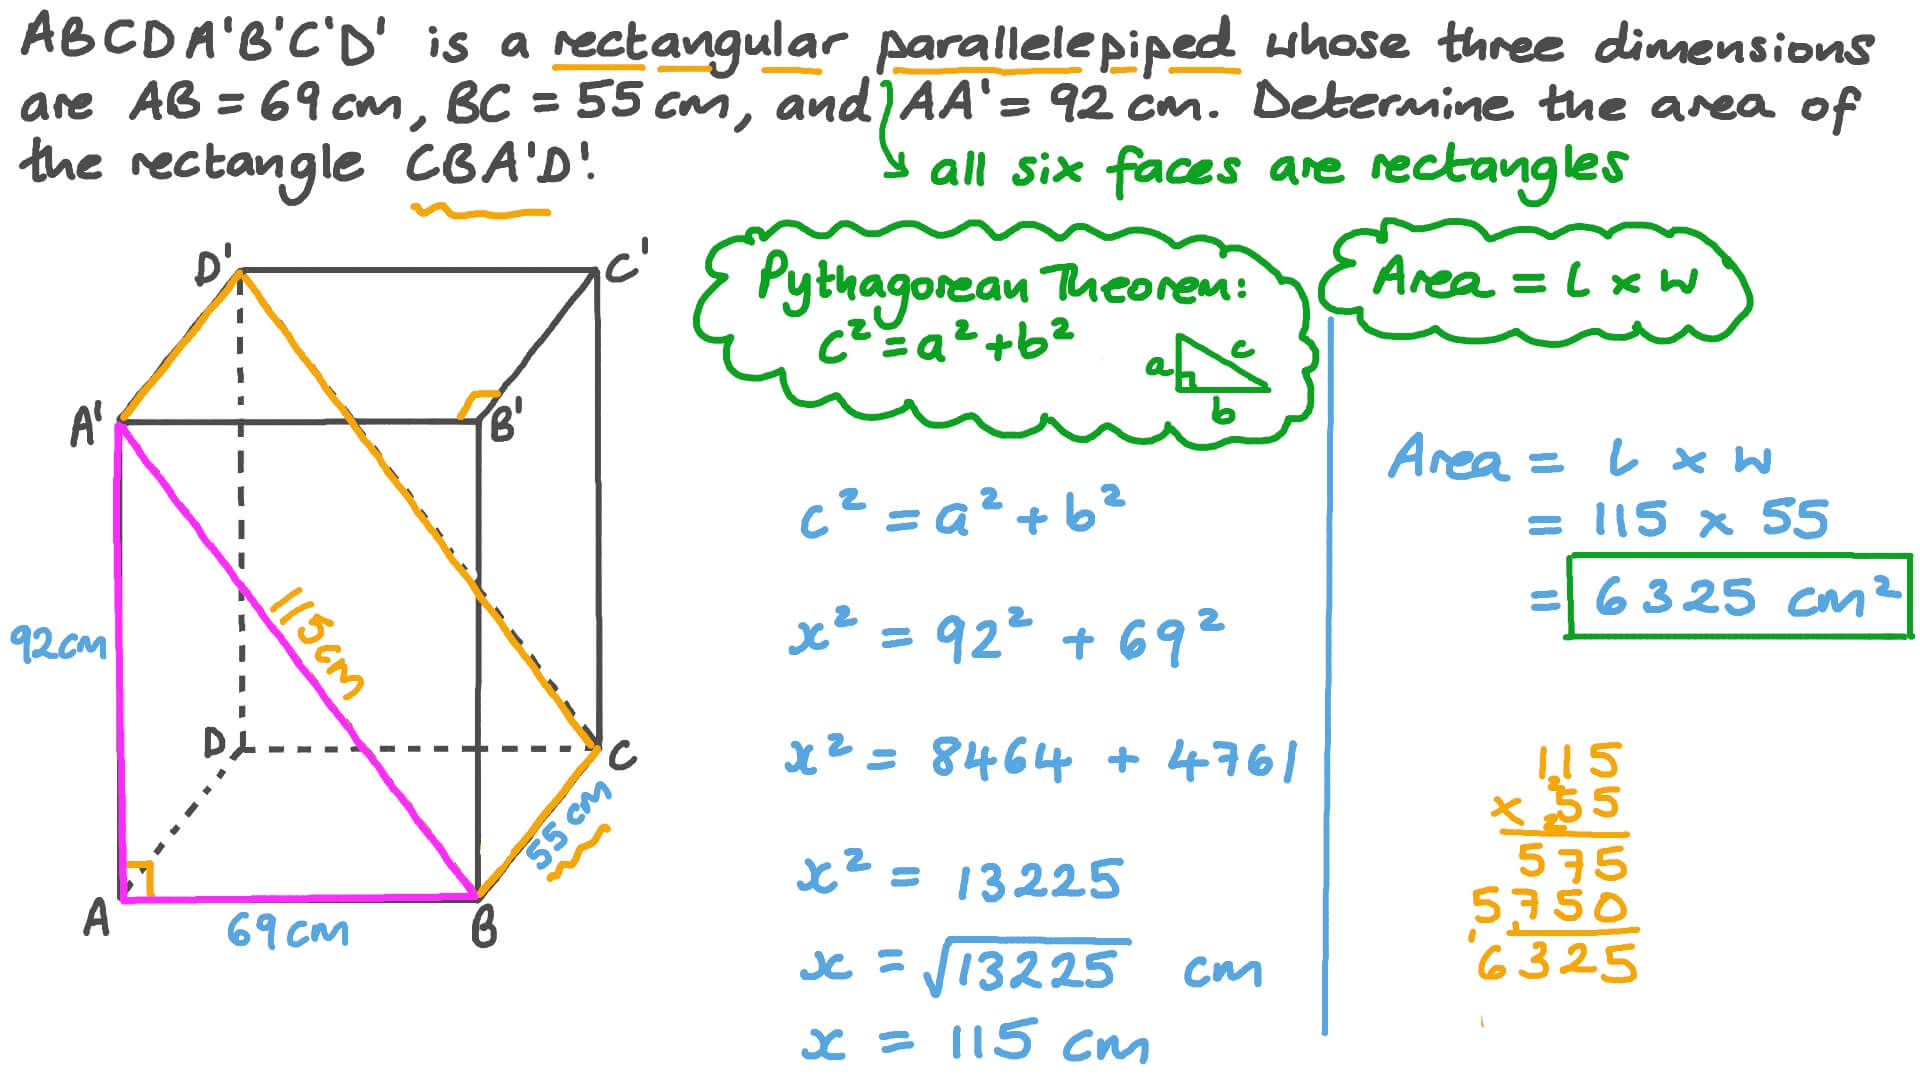 ABCDA'B'C'D' is a rectangular parallelepiped whose three dimensions
are AB = 69 cm, BC = 55 cm, and AA' = 92 cm. Determine the area of
the rectangle CBA'D'.
all six faces are rectangles
D'
C'
A'
B'
92cm
115cm
D
C
55cm
A
69cm
B
Pythagorean Theorem:
c² = a² + b²
a
c
b
c² = a² + b²
x² = 92² + 69²
x² = 8464 + 4761
x² = 13225
x = √13225 cm
x = 115 cm
Area = L x W
Area = L x W
= 115 x 55
= 6325 cm²
115
2
x 55
2
575
5750
1 1
6325